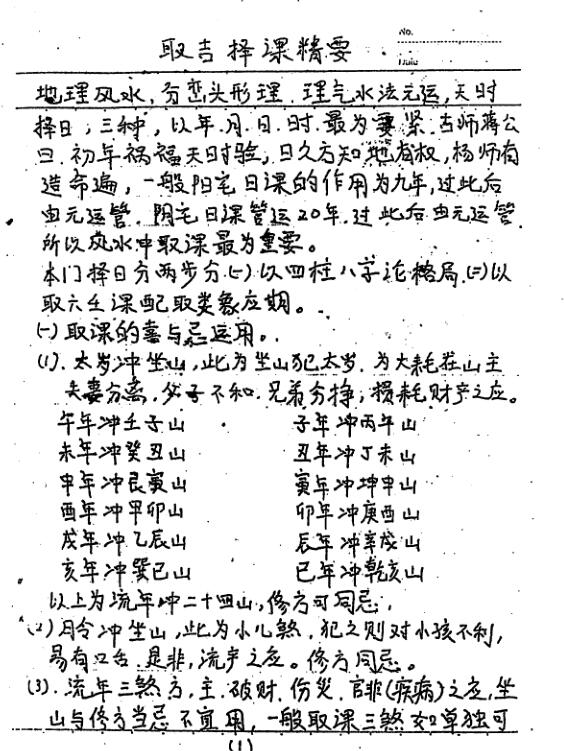 取吉择课精要
No.
Date
地理风水，分峦头形理，理气水法元运，天时
择日，三种，以年.月.日.时.最为要紧.古师蒋公
曰.初年祸福天时验，日久方知地有权，杨师有
造命遍，一般阳宅日课的作用为九年，过此后
由元运管.阴宅日课管运20年.过此后由元运管.
所以风水中取课最为重要。
本门择日分两步分.(一)以四柱八字论格局.(二)以
取六壬课配取类象应期。
(一)取课的喜与忌运用。
(1).太岁冲坐山，此为坐山犯太岁.为大耗在山主
夫妻分离.父子不和.兄弟分挣，损耗财产之应。
午年冲壬子山 子年冲丙午山
未年冲癸丑山 丑年冲丁未山
申年冲艮寅山 寅年冲坤申山
酉年冲甲卯山 卯年冲庚酉山
戌年冲乙辰山 辰年冲辛戌山
亥年冲巽巳山 巳年冲乾亥山
以上为流年冲二十四山，修方可同忌，
(2)月令冲坐山，此为小儿煞.犯之则对小孩不利，
易有口舌.是非，流产之应。修方同忌。
(3).流年三煞方，主.破财.伤灾.官非(疾病)之应，坐
山与修方当忌不宜用，一般取课三煞如单独可
(1)